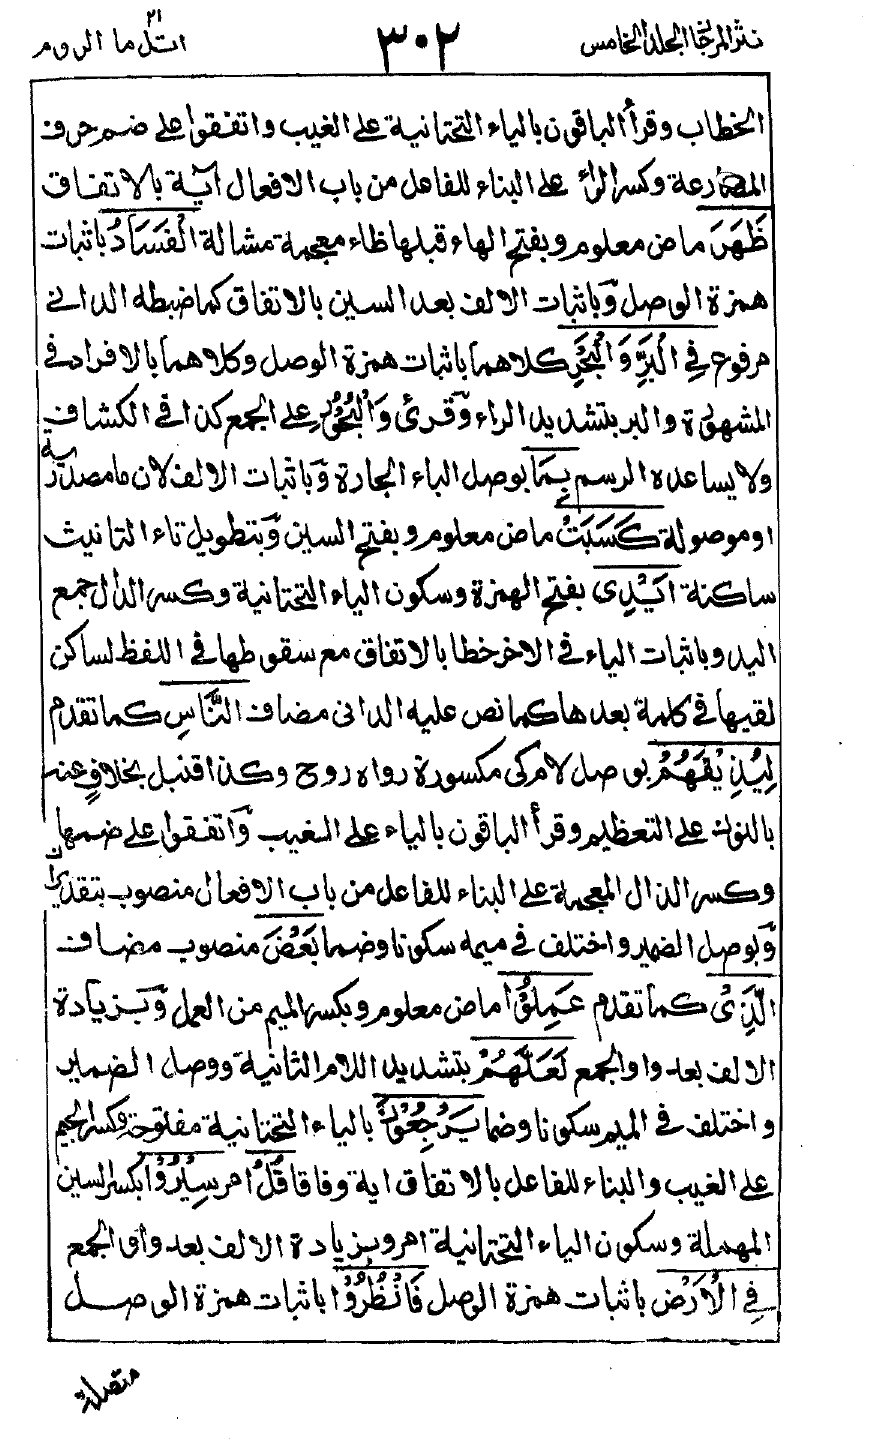 نثر المرجان المجلد الخامس
٣٠٢
اتل ما ٢١ الروم
الخطاب وقرأ الباقون بالياء التحتانية على الغيب واتفقوا على ضم حرف
المضارعة وكسر الراء على البناء للفاعل من باب الافعال آية بالاتفاق
ظَهَرَ ماض معلوم وبفتح الهاء قبلها ظاء معجمة مشالة الْفَسَادُ باثبات
همزة الوصل وباثبات الالف بعد السين بالاتفاق كما ضبطه الدانى
مرفوع فِي الْبَرِّ وَالْبَحْرِ كلاهما باثبات همزة الوصل وكلاهما بالافراد فى
المشهورة والبر بتشديد الراء وقرئ وَالْبُحُوْرِ على الجمع كذا فى الكشاف
ولا يساعده الرسم بِمَا بوصل الباء الجارة وباثبات الالف لان ما مصدرية
او موصولة كَسَبَتْ ماض معلوم وبفتح السين وبتطويل تاء التانيث
ساكنة اَيْدِى بفتح الهمزة وسكون الياء التحتانية وكسر الدال جمع
اليد وباثبات الياء فى الاخر خطا بالاتفاق مع سقوطها فى اللفظ لساكن
لقيها فى كلمة بعدها كما نص عليه الدانى مضاف النَّاسِ كما تقدم
لِيُذِيْقَهُمْ بوصل لام كى مكسورة رواه روح وكذا قنبل بخلاف عنه
بالنون على التعظيم وقرأ الباقون بالياء على الغيب واتفقوا على ضمها
وكسر الذال المعجمة على البناء للفاعل من باب الافعال منصوب بتقدير ان
وبوصل الضمير واختلف فى ميمه سكونا وضما بَعْضَ منصوب مضاف
الَّذِىْ كما تقدم عَمِلُوْا ماض معلوم وبكسر الميم من العمل وبزيادة
الالف بعد واو الجمع لَعَلَّهُمْ بتشديد اللام الثانية ووصل الضمير
واختلف فى الميم سكونا وضما يَرْجِعُوْنَ بالياء التحتانية مفتوحة وكسر الجيم
على الغيب والبناء للفاعل بالاتفاق اية وفاقا قُلْ امر سِيْرُوْا بكسر السين
المهملة وسكون الياء التحتانية امر وبزيادة الالف بعد واو الجمع
فِي الْاَرْضِ باثبات همزة الوصل فَانْظُرُوْا باثبات همزة الوصل
متصلة